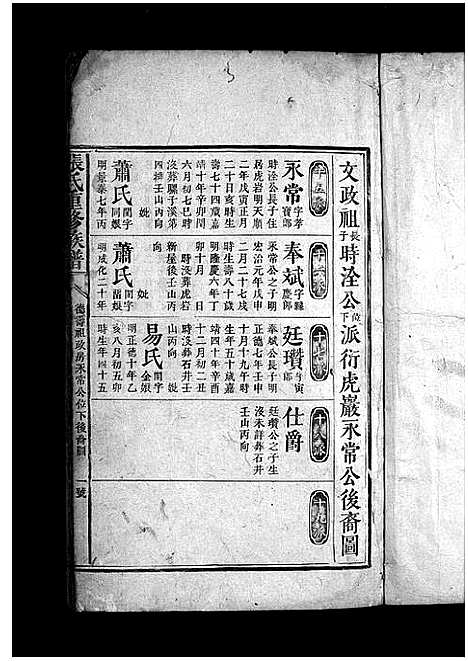 文政祖長子時淦公位下派衍虎巖永常公後裔圖
十五派
永常 字孝寶郎
時淦公長子住
居虎岩明天順
二年戊寅正月
二十日亥時生
享年七十四歲嘉
靖十年辛卯閏
六月初七時
沒葬騾子溪第
四排壬山丙向
妣
蕭氏 閨字同娘
明景泰七年丙
十六派
奉斌 字縣慶郎
永常公之子明
宏治元年戊申
二月二十七戌
時生壽八十歲
明隆慶六年丁
卯十月日沒葬
新屋後壬山丙
向
妣
蕭氏 閨字苗娘
明成化二十年
十七派
廷瓚 字寅郎
奉斌公長子明
正德七年壬申
十月十九午時
生年五十歲嘉
靖四十年辛酉
十二月初二丑
時沒葬石井壬
山丙向 妣
易氏 閨字金娘
明正德十年乙
亥八月初五卯
時生年四十五
十八派
仕爵
廷瓚公之子生
沒未詳葬石井
壬山丙向
十九派
張氏重修族譜
德壽祖政房永常公位下後裔圖
一號